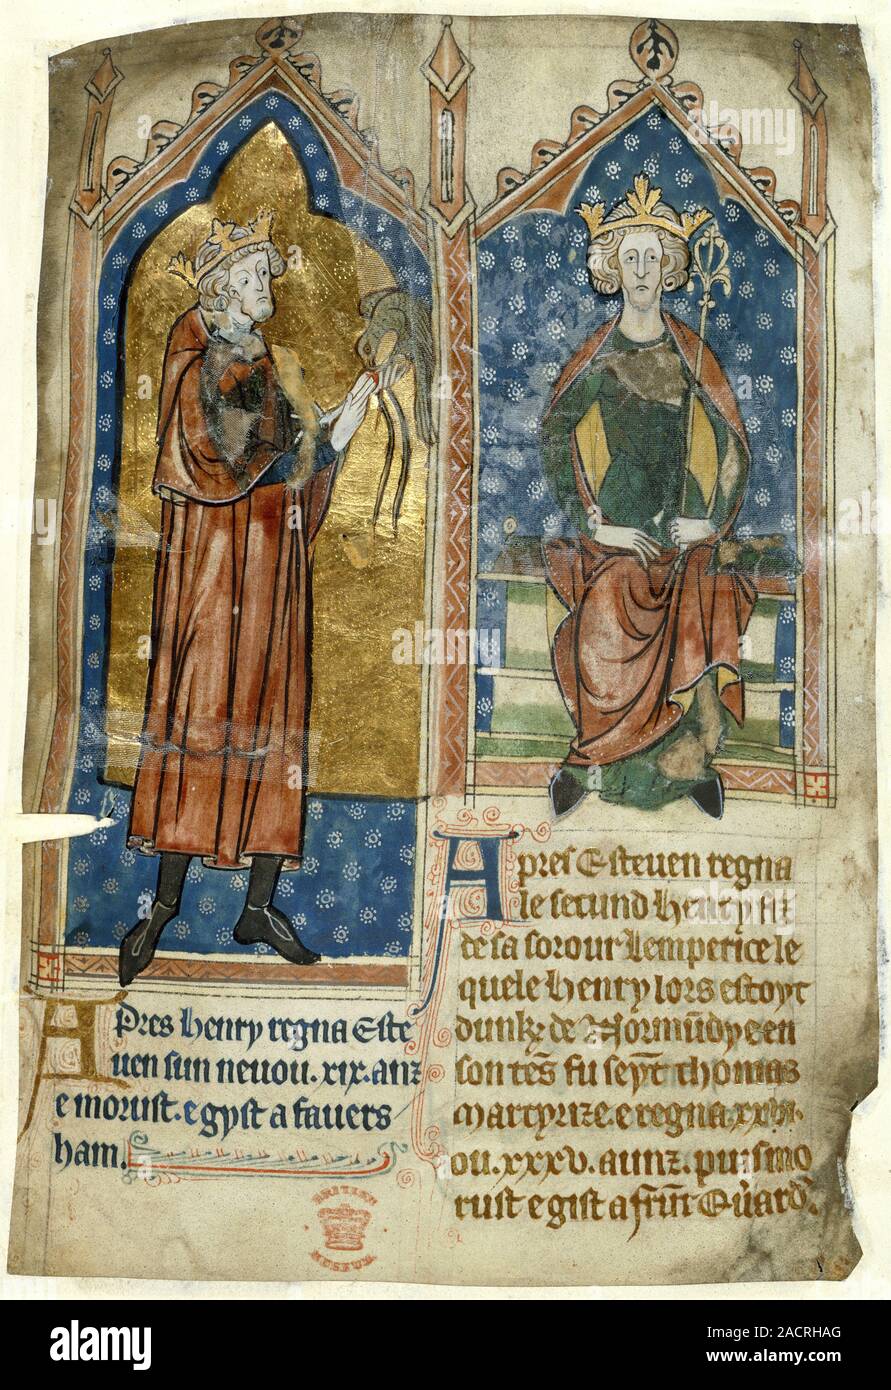 Apres henry regna Este
uen sun neuou .xix. anz
e morust. e gyst a fauers
ham.
Apres Esteuen regna
le secund henry fiz
de sa soror lemperice le
quele henry lors estoyt
dunk de Normundye en
son tens fu seynt thomas
martyrize. e regna
ou .xxxv. aunz. puis mo
rust e gist a
BRITISH
MUSEUM
alamy
Image ID: 2ACRHAG
www.alamy.com